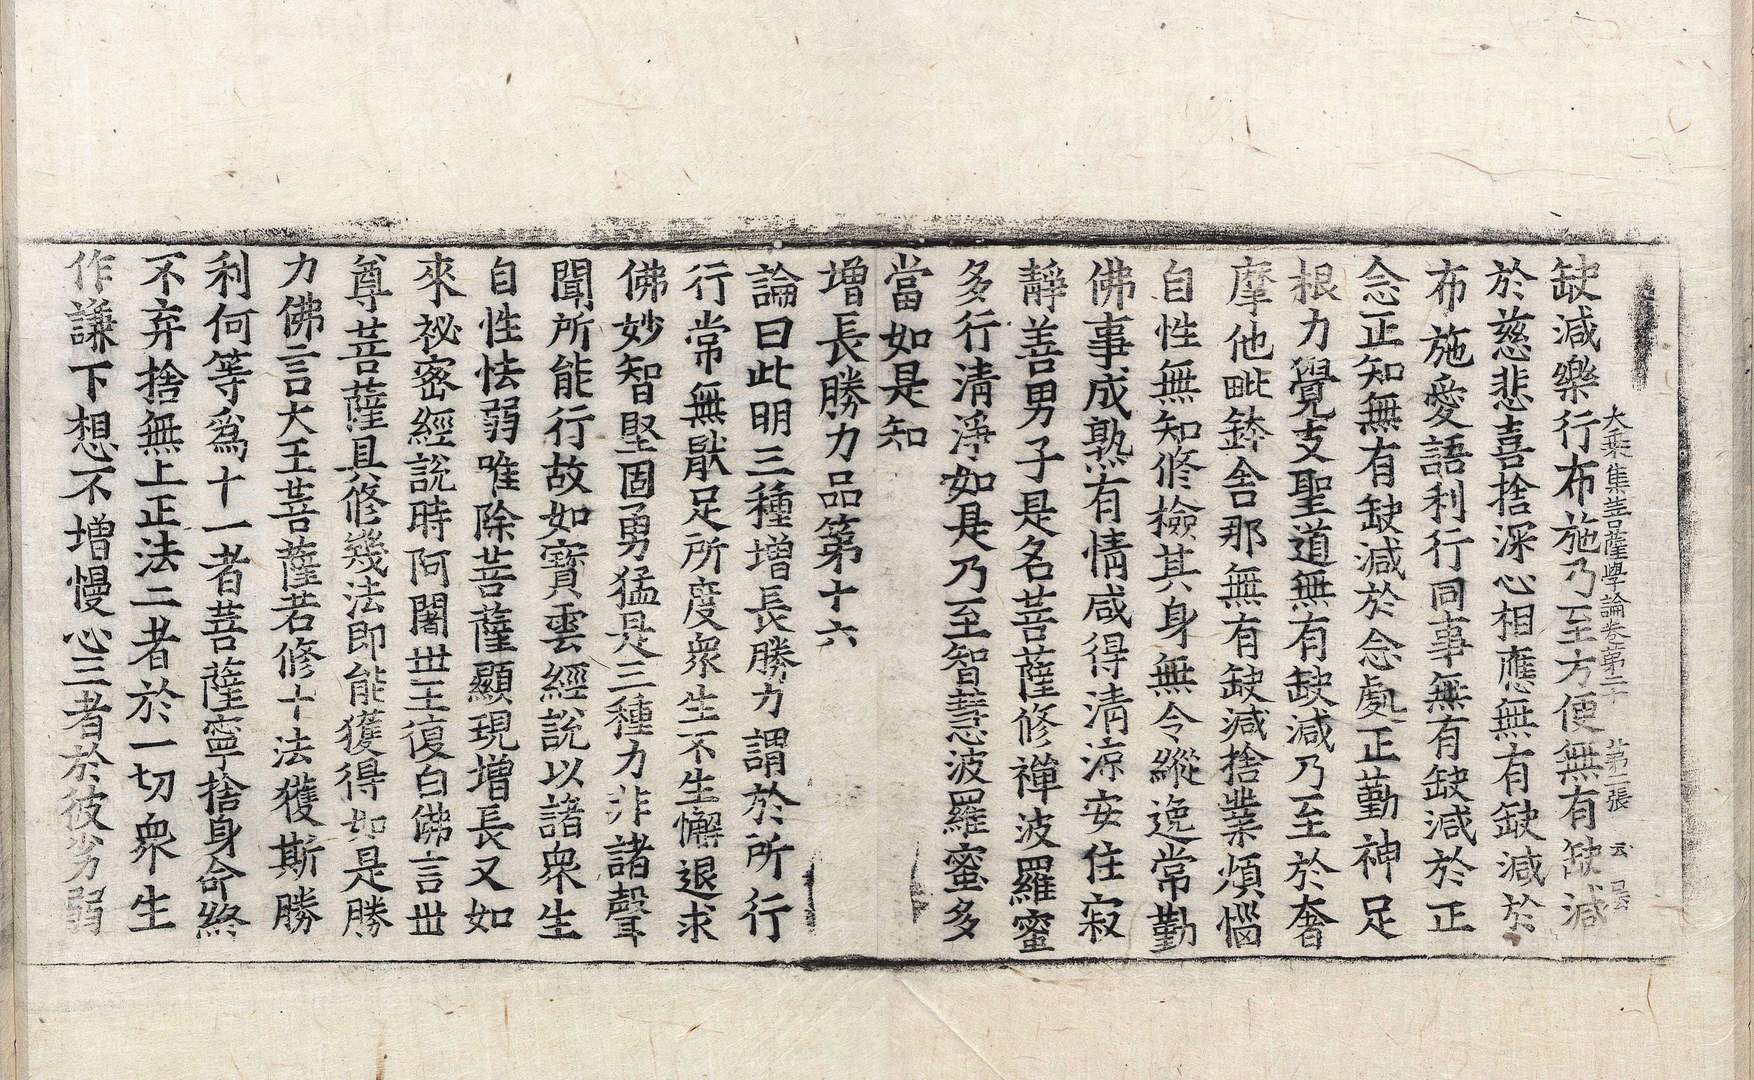 大乘集菩薩學論卷第二十 第二張 云
缺減樂行布施乃至方便無有缺減
於慈悲喜捨深心相應無有缺減於
布施愛語利行同事無有缺減於正
念正知無有缺減於念處正勤神足
根力覺支聖道無有缺減乃至於奢
摩他毗鉢舍那無有缺減捨業煩惱
自性無知修檢其身無令縱逸常勤
佛事成熟有情咸得清涼安住寂
靜善男子是名菩薩修禪波羅蜜
多行清淨如是乃至智慧波羅蜜多
當如是知
增長勝力品第十六
論曰此明三種增長勝力謂於所行
行常無猒足所度衆生不生懈退求
佛妙智堅固勇猛是三種力非諸聲
聞所能行故如寶雲經說以諸衆生
自性怯弱唯除菩薩顯現增長又如
來祕密經說時阿闍世王復白佛言世
尊菩薩具修幾法即能獲得如是勝
力佛言大王菩薩若修十法獲斯勝
利何等爲十一者菩薩寧捨身命終
不弃捨無上正法二者於一切衆生
作謙下想不增慢心三者於彼劣弱